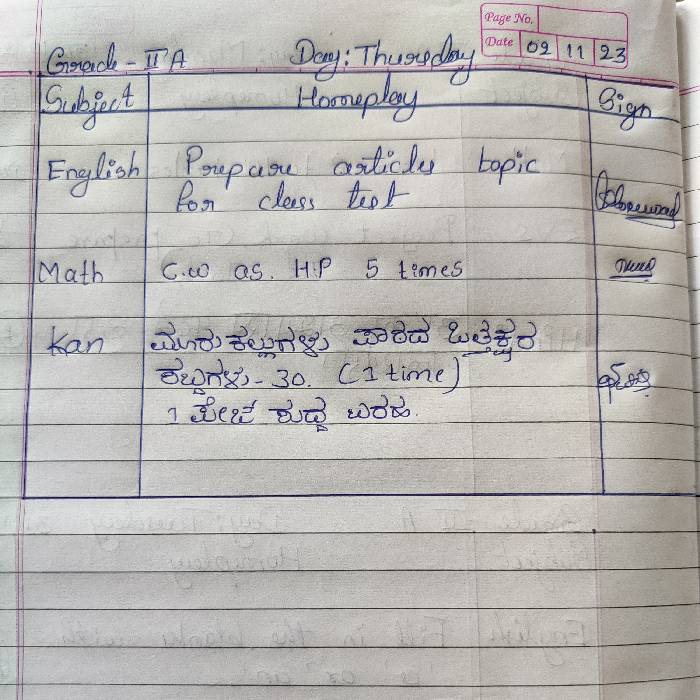 Page No.
Date 02 11 23
Grade - II A Day: Thursday
Subject Homeplay Sign
English Prepare articles topic
for class test
Math C.W as. H.P 5 times
Kan ಮೂರು ಕಲ್ಲುಗಳು ಪಾಠದ ಒತ್ತಕ್ಷರ
ಶಬ್ದಗಳು - 30. (1 time)
1 ಪೇಜ್ ಶುದ್ಧ ಬರಹ.